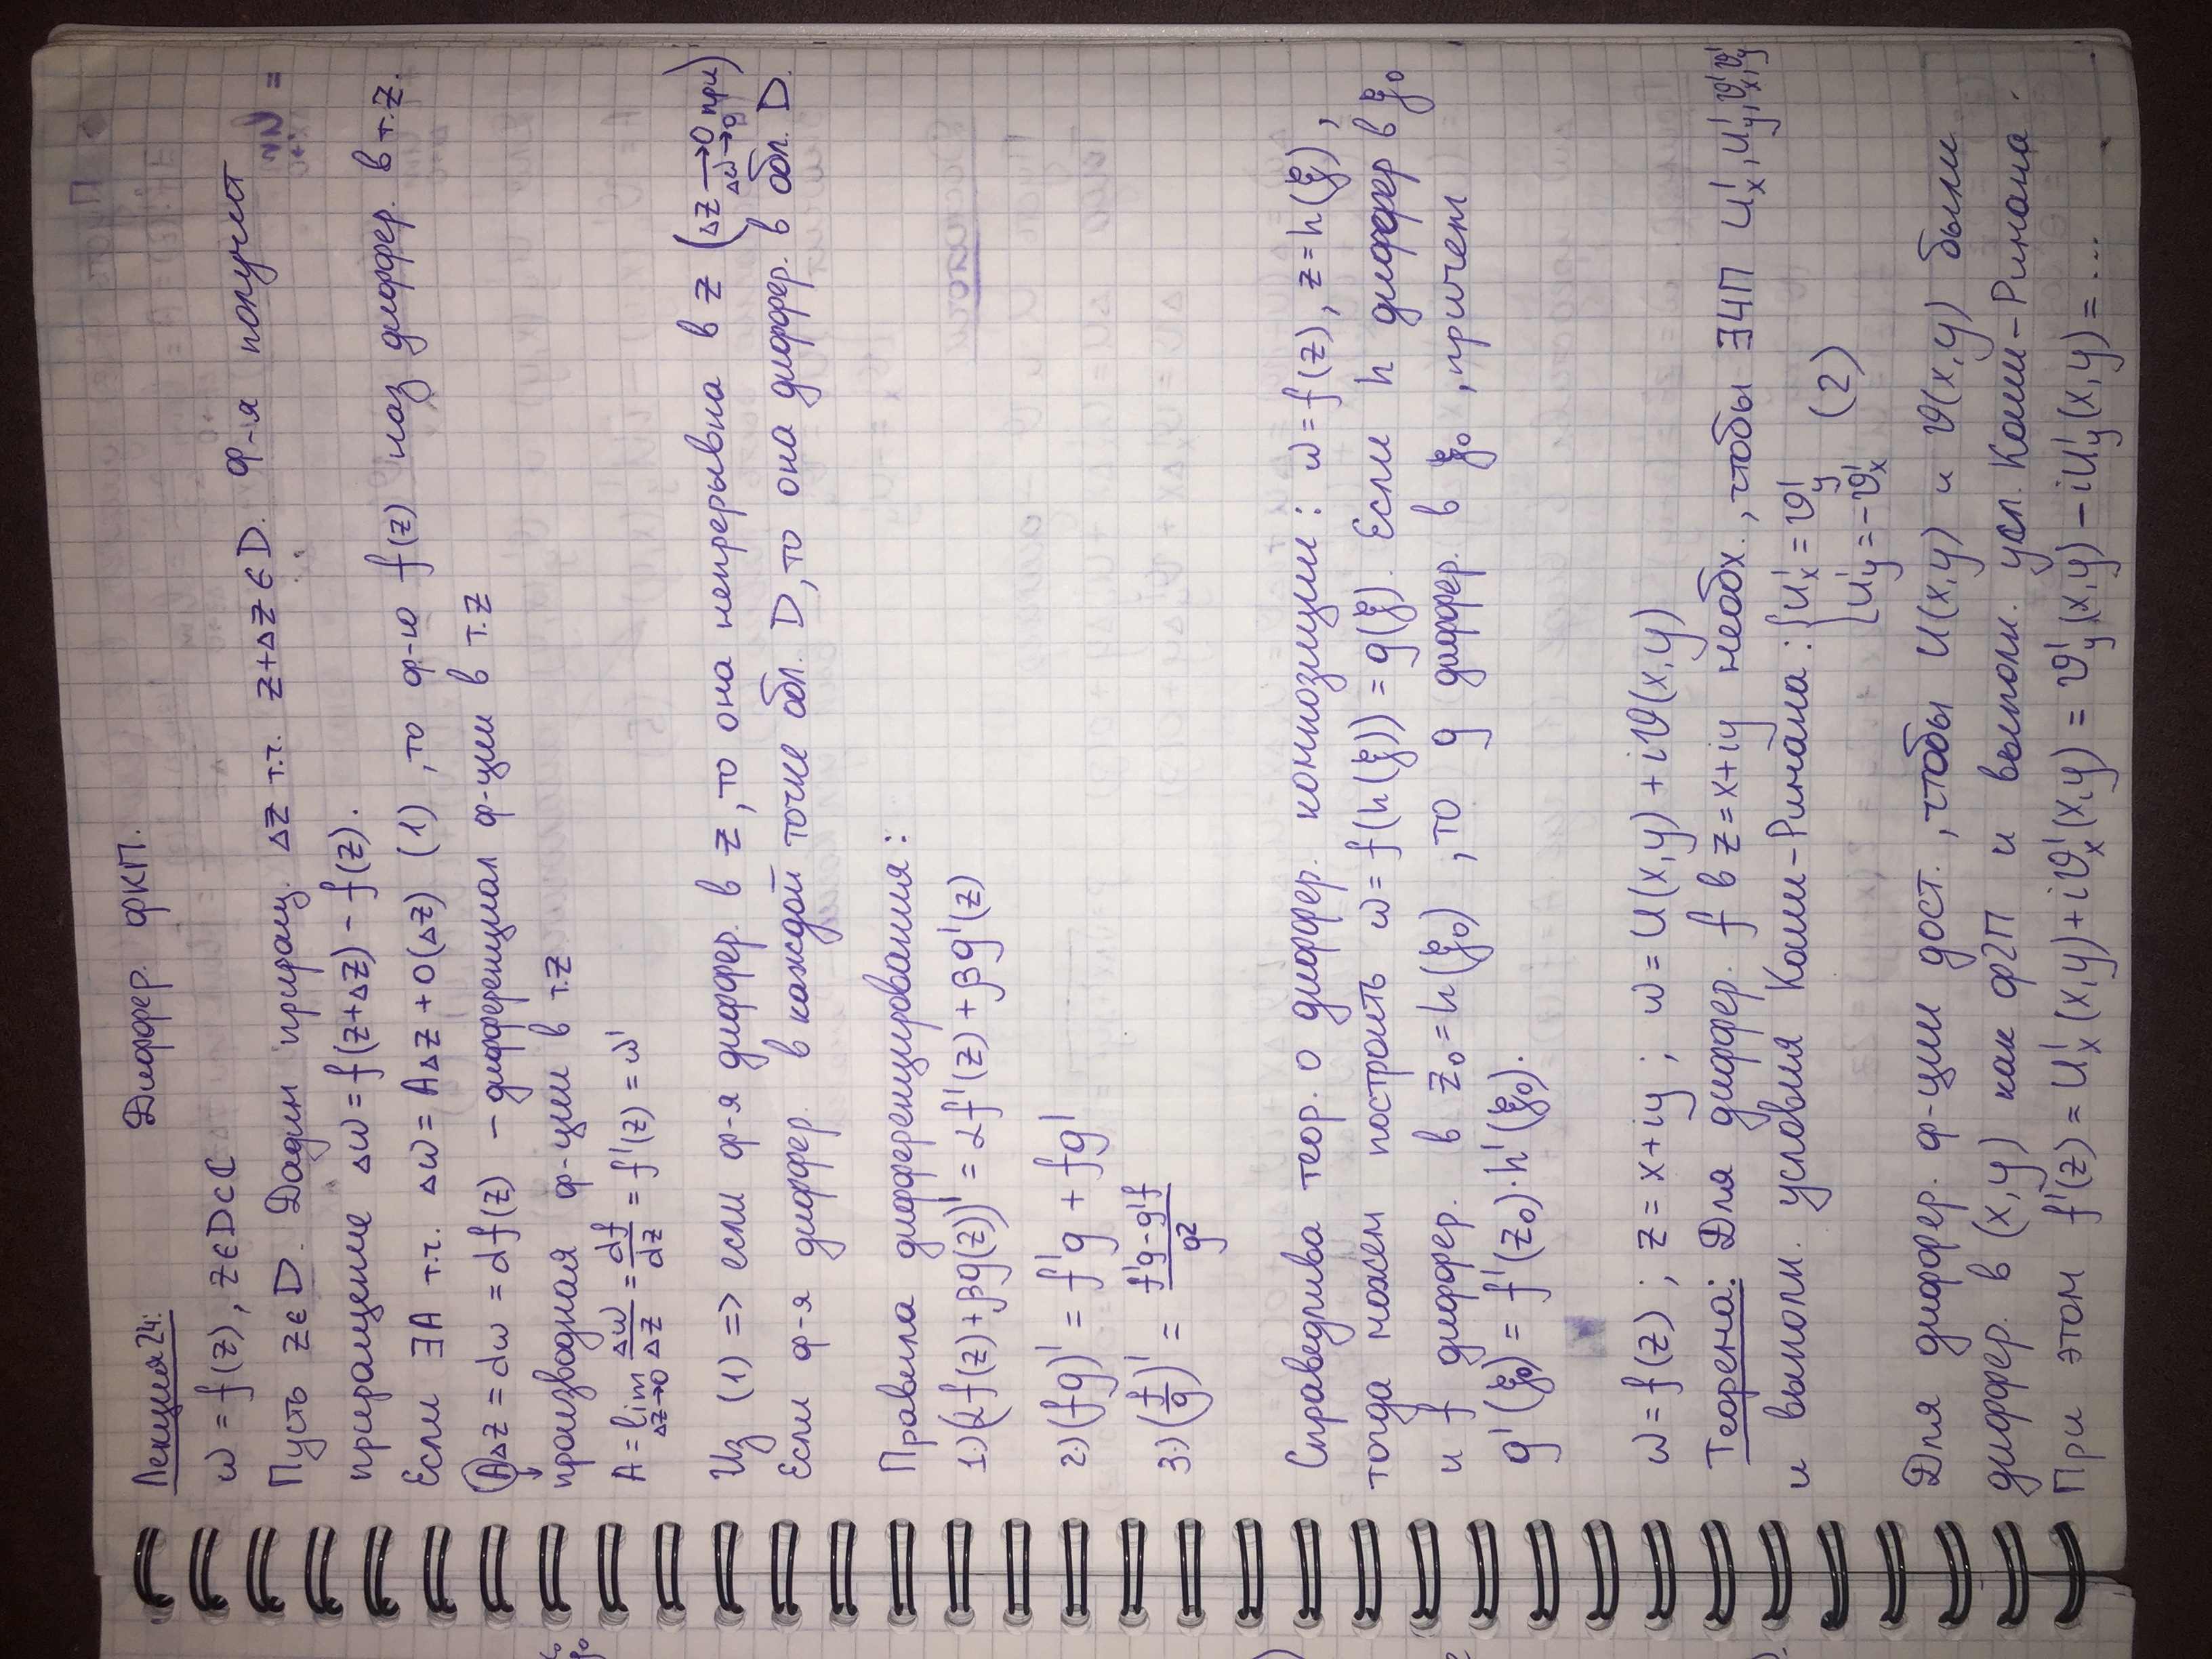 Лекция 24: Диффер. ФКП.
ω = f(z), z∈D⊂ℂ
Пусть z∈D. Дадим приращ. Δz т.ч. z+Δz∈D. Ф-я получит
приращение Δω = f(z+Δz) - f(z).
Если ∃A т.ч. Δω = AΔz + o(Δz) (1), то ф-ю f(z) наз диффер. в т.z.
AΔz = dω = df(z) – дифференциал ф-ции в т.z
↓
производная ф-ции в т.z
A = lim_{Δz→0} Δω/Δz = df/dz = f'(z) = ω'
Из (1) => если ф-я диффер. в z, то она непрерывна в z (Δz→0 при Δω→0)
Если ф-я диффер. в каждой точке обл. D, то она диффер. в обл. D.
Правила дифференцирования:
1.) (αf(z) + βg(z))' = αf'(z) + βg'(z)
2.) (fg)' = f'g + fg'
3.) (f/g)' = (f'g - g'f)/g²
Справедлива теор. о диффер. композиции: ω = f(z), z = h(ξ),
тогда можем построить ω = f(h(ξ)) = g(ξ). Если h диффер в ξ₀
и f диффер. в z₀ = h(ξ₀), то g диффер. в ξ₀, причем
g'(ξ₀) = f'(z₀)·h'(ξ₀).
ω = f(z) ; z = x+iy ; ω = U(x,y) + iϑ(x,y)
Теорема: Для диффер. f в z = x+iy необх., чтобы ∃ЧП U'ₓ, U'_y, ϑ'ₓ, ϑ'_y
и выполн. условия Коши-Римана: { U'ₓ = ϑ'_y
U'_y = -ϑ'ₓ (2)
Для диффер. ф-ции дост., чтобы U(x,y) и ϑ(x,y) были
диффер. в (x,y) как ф2П и выполн. усл. Коши-Римана.
При этом f'(z) = U'ₓ(x,y) + iϑ'ₓ(x,y) = ϑ'_y(x,y) - iU'_y(x,y) = ...